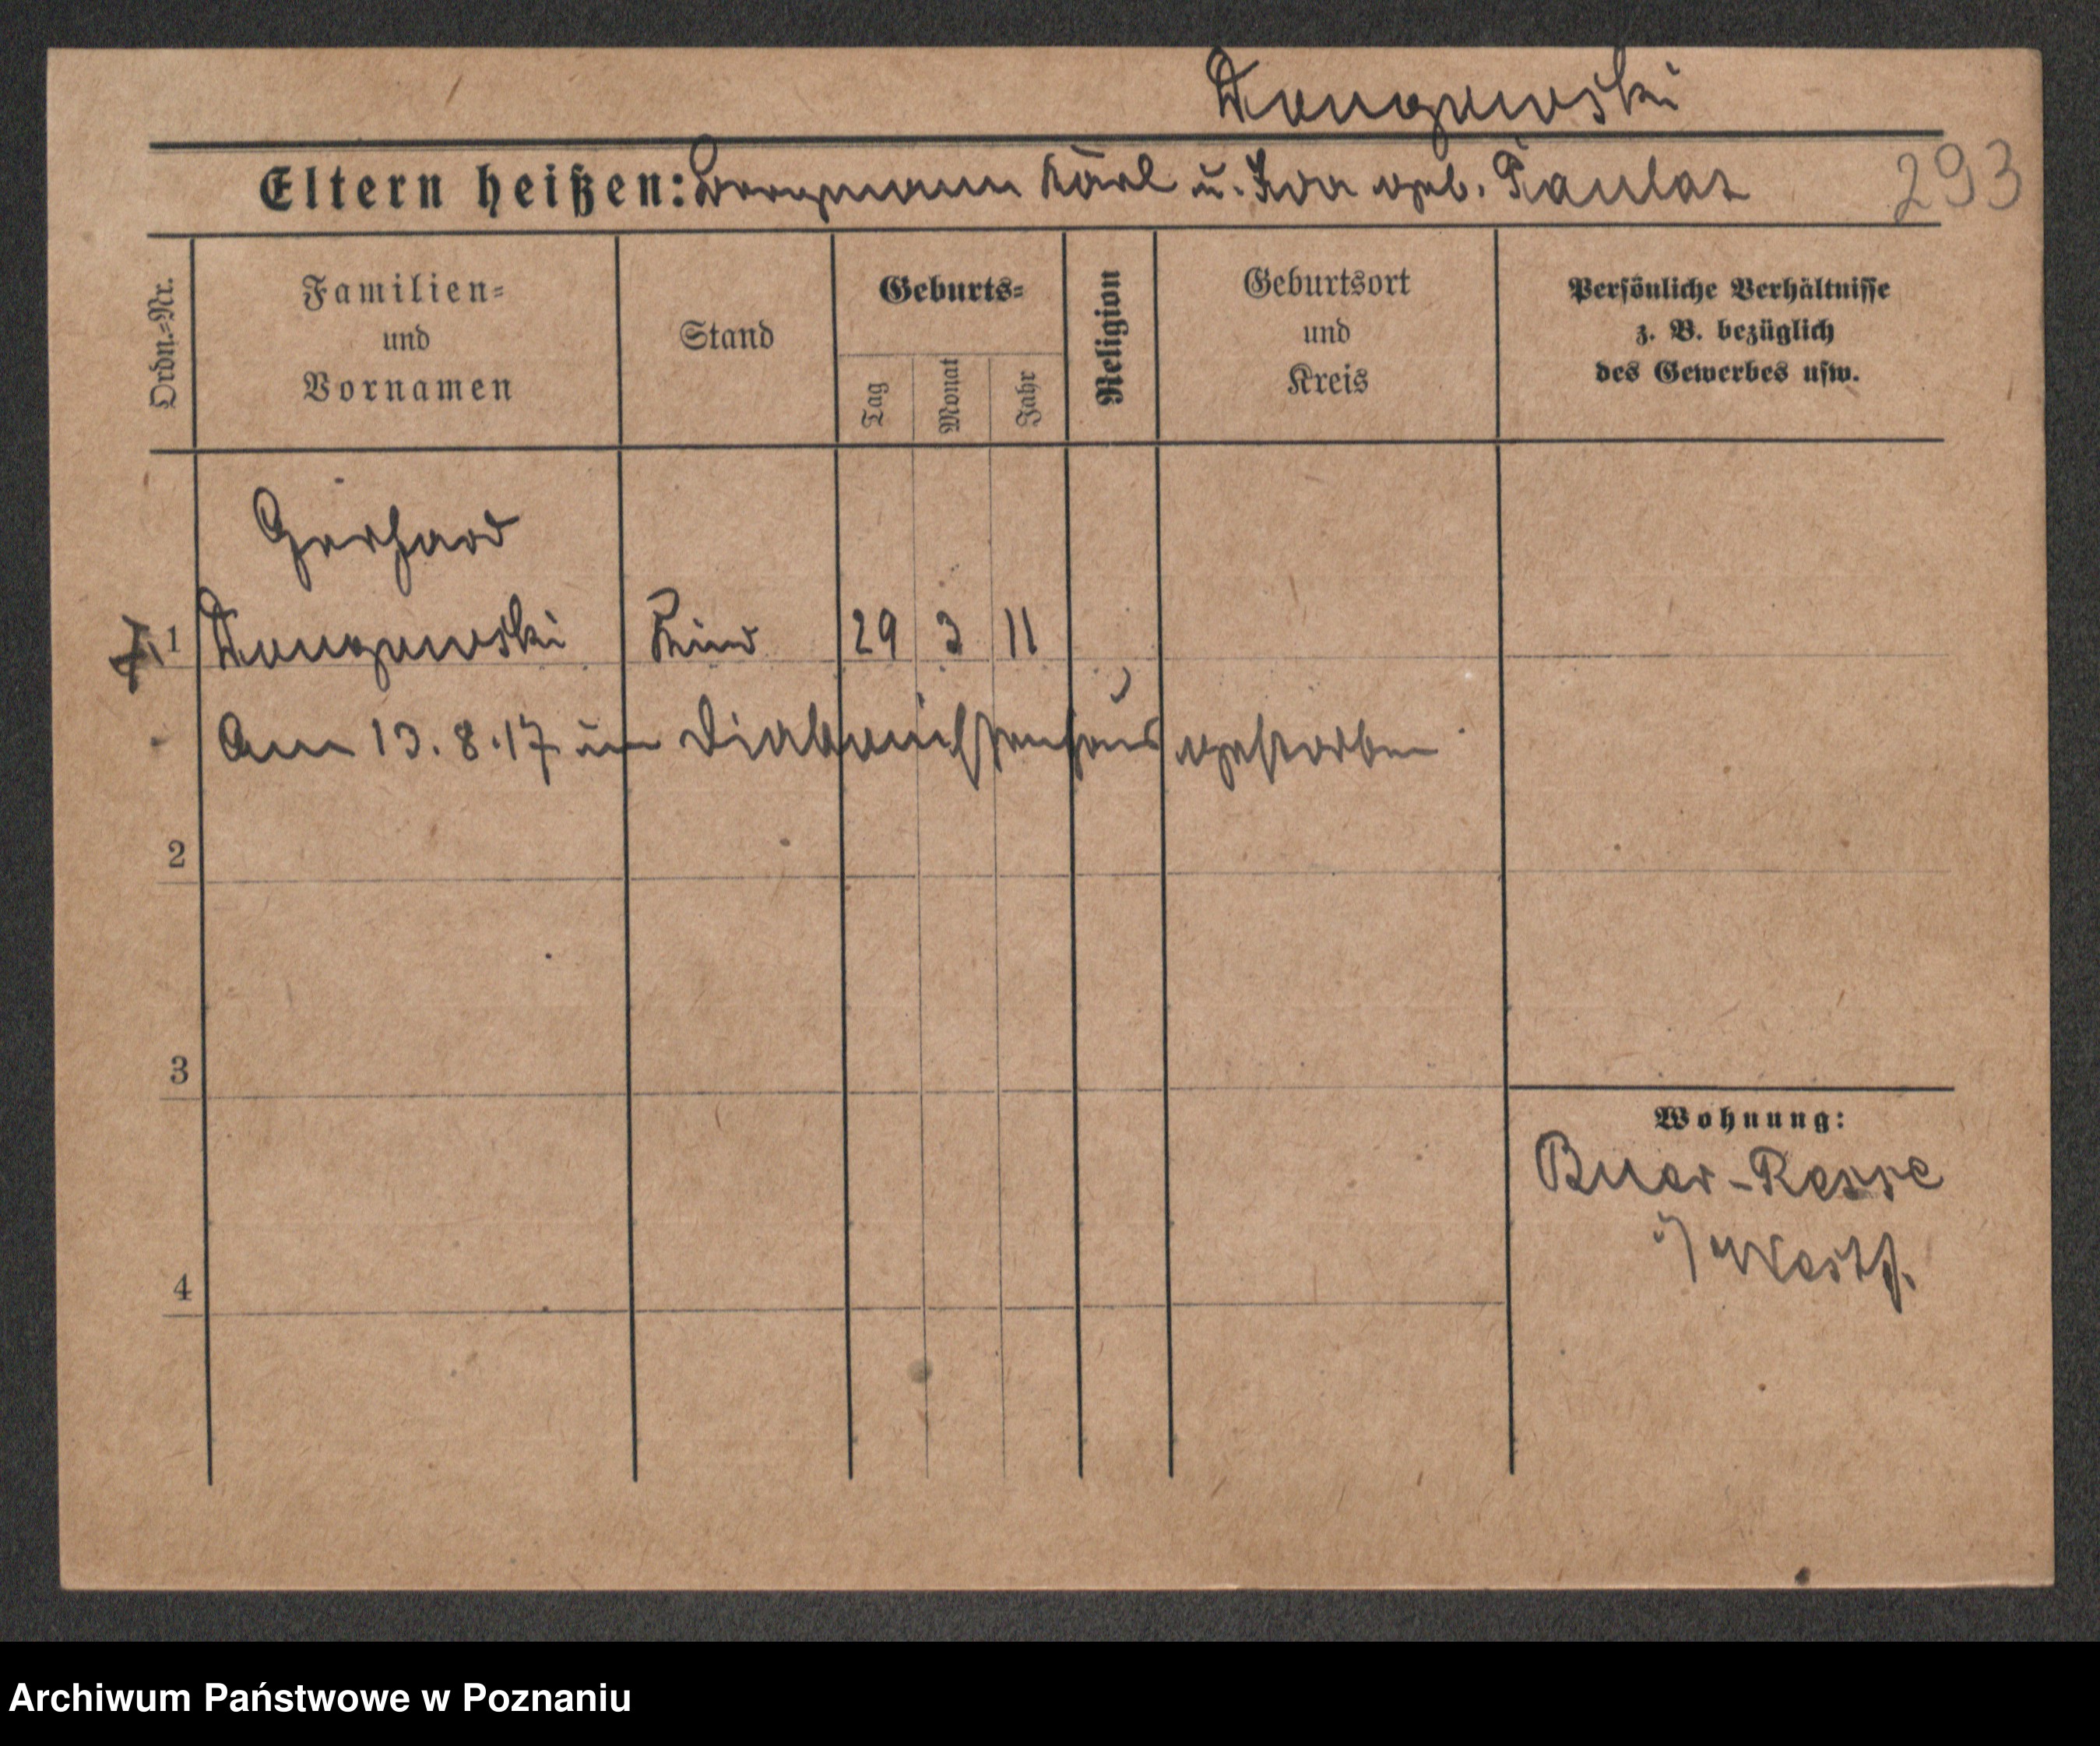 Dongowski
Eltern heißen: Bergmann Karl u. Ida geb. Paulat
293
Ordn.-Nr.
Familien-
und
Vornamen
Stand
Geburts-
Tag
Monat
Jahr
Religion
Geburtsort
und
Kreis
Persönliche Verhältnisse
z. B. bezüglich
des Gewerbes usw.
Gerhard
1 Dongowski Kind 29 3 11
Am 13.8.17 im Diakonissenhaus gestorben
2
3
4
Wohnung:
Buer-Resse
i/Westf.
Archiwum Państwowe w Poznaniu